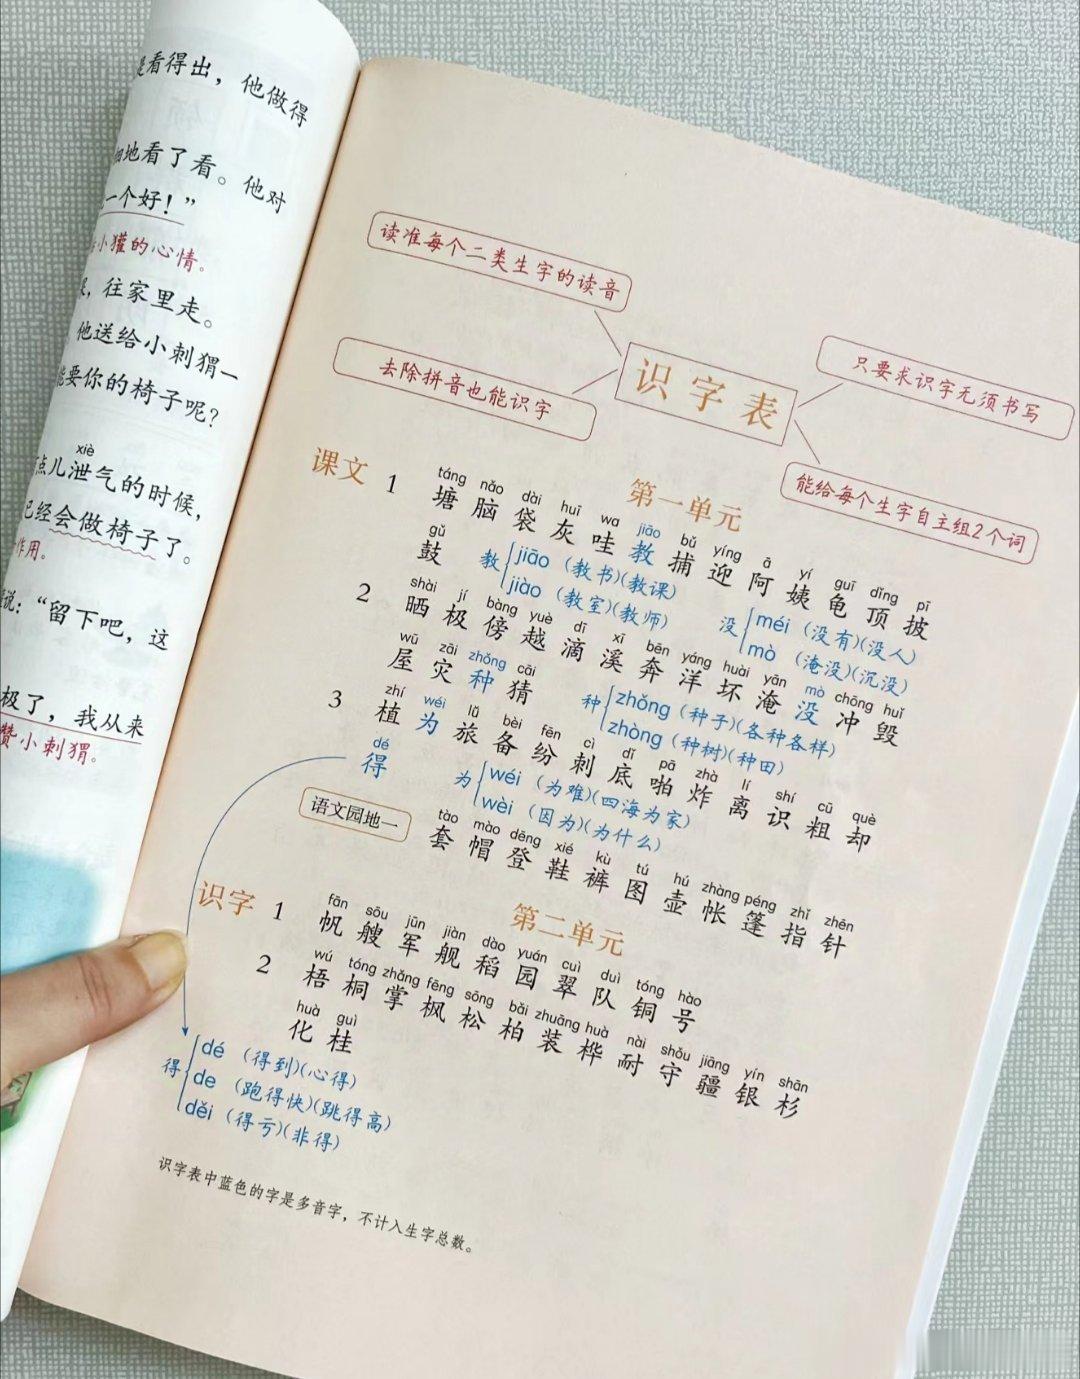 看得出，他做得
地看了看。他对
一个好！”
小獾的心情。
，往家里走。
他送给小刺猬一
要你的椅子呢？
xiè
点儿泄气的时候，
已经会做椅子了。
作用。
说：“留下吧，这
极了，我从来
赞小刺猬。
读准每个二类生字的读音
去除拼音也能识字
识字表
只要求识字无须书写
能给每个生字自主组2个词
第一单元
课文 1
táng nǎo dài huī wa jiāo bǔ yíng ā yí guī dǐng pī
塘 脑 袋 灰 哇 教 捕 迎 阿 姨 龟 顶 披
gǔ
鼓
教 jiāo（教书）（教课）
jiào（教室）（教师）
没 méi（没有）（没人）
mò（淹没）（沉没）
2
shài jí bàng yuè dī xī bēn yáng huài yān mò chōng huǐ
晒 极 傍 越 滴 溪 奔 洋 坏 淹 没 冲 毁
wū zāi zhǒng cāi
屋 灾 种 猜
种 zhǒng（种子）（各种各样）
zhòng（种树）（种田）
3
zhí wéi lǚ bèi fēn cì dǐ pā zhà lí shí cū què
植 为 旅 备 纷 刺 底 啪 炸 离 识 粗 却
dé
得
为 wéi（为难）（四海为家）
wèi（因为）（为什么）
语文园地一
tào mào dēng xié kù tú hú zhàng péng zhǐ zhēn
套 帽 登 鞋 裤 图 壶 帐 篷 指 针
第二单元
识字 1
fān sōu jūn jiàn dào yuán cuì duì tóng hào
帆 艘 军 舰 稻 园 翠 队 铜 号
2
wú tóng zhǎng fēng sōng bǎi zhuāng huà nài shǒu jiāng yín shān
梧 桐 掌 枫 松 柏 装 桦 耐 守 疆 银 杉
huà guì
化 桂
得 dé（得到）（心得）
de（跑得快）（跳得高）
děi（得亏）（非得）
识字表中蓝色的字是多音字，不计入生字总数。